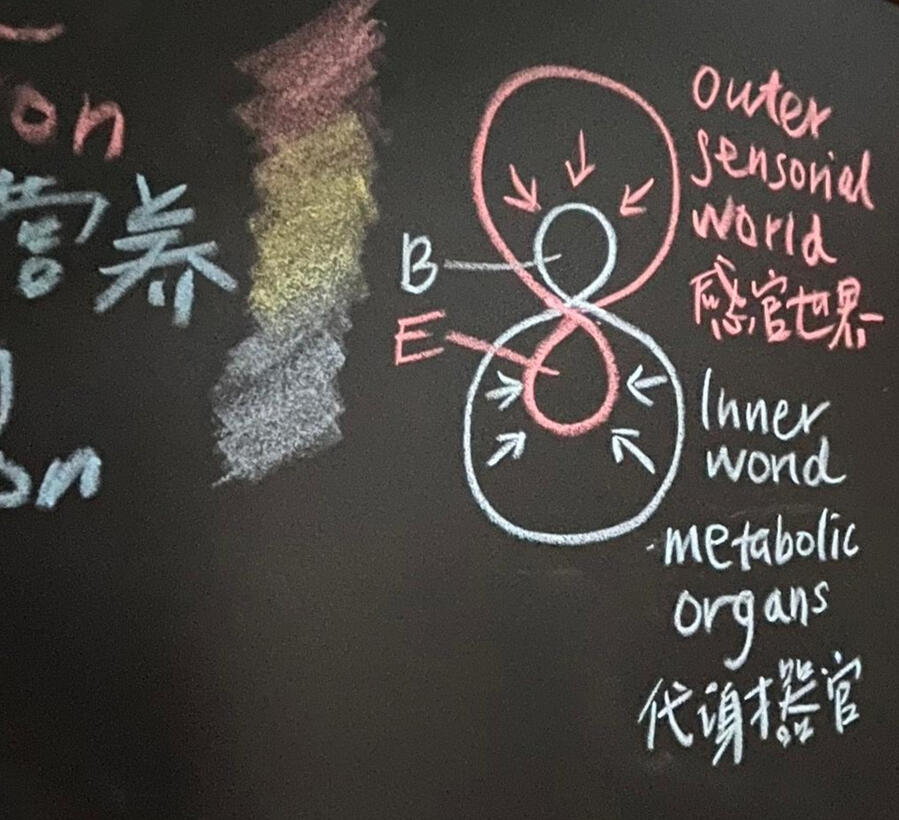 on
营养
on
B
E
outer
sensorial
world
感官世界
Inner
world
metabolic
organs
代谢器官